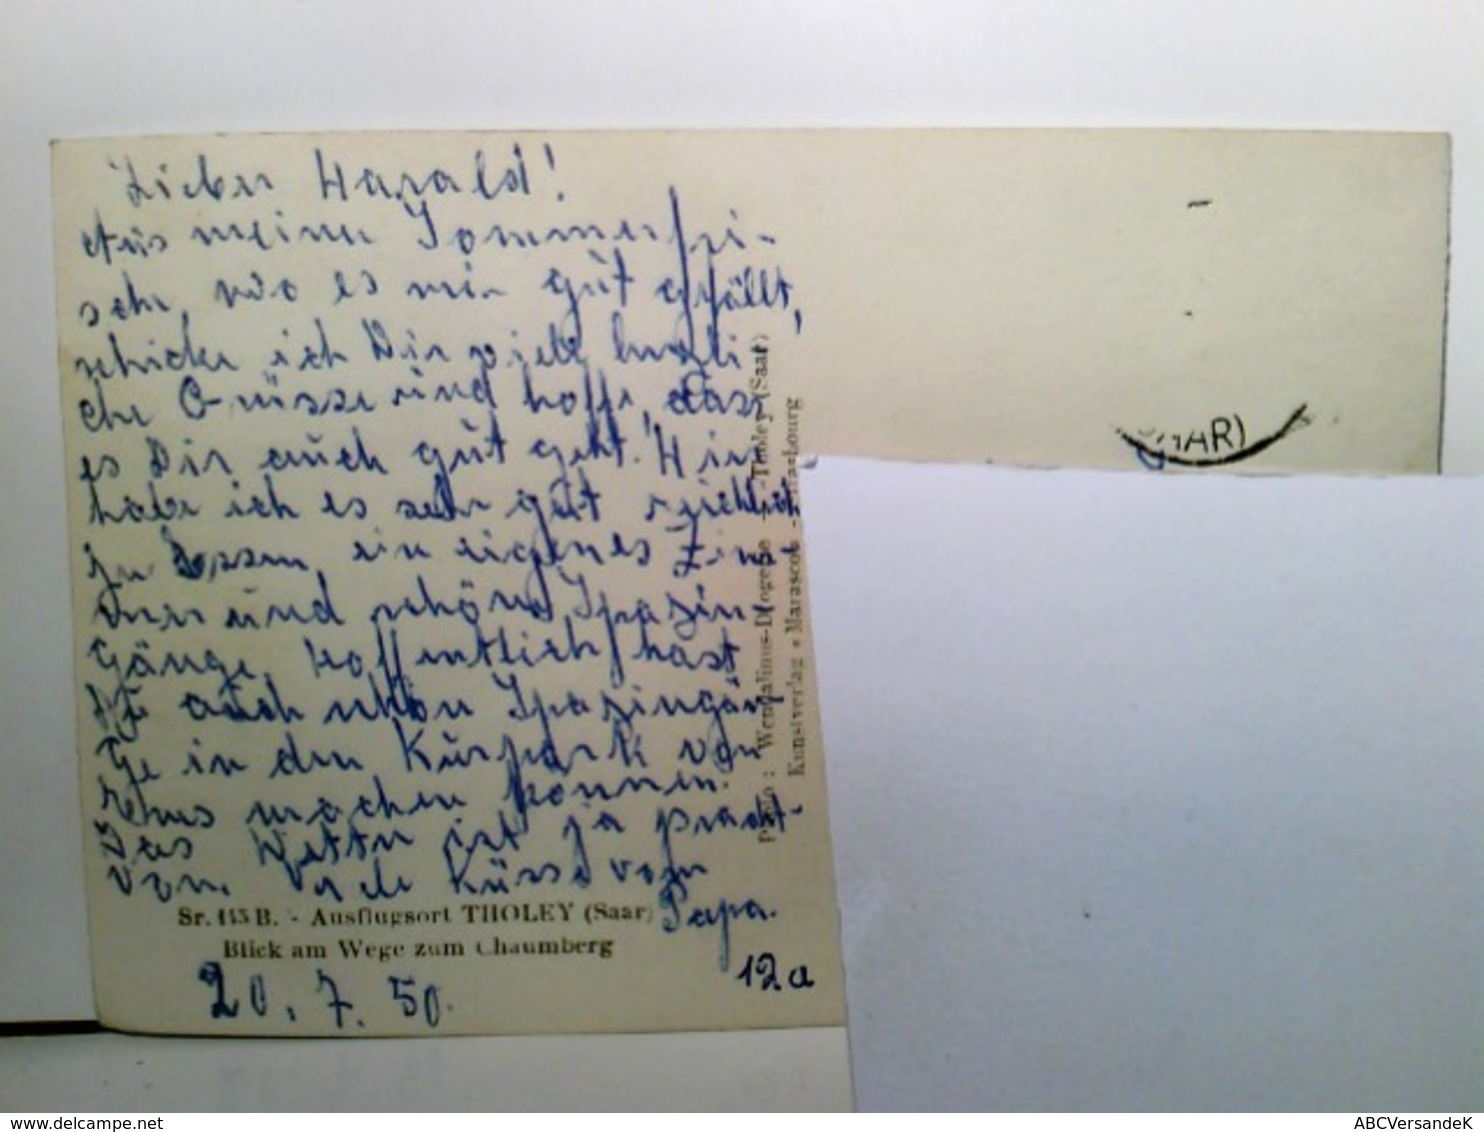 Lieber Harald!
Aus meiner Sommerfri-
sche, wo es mir gut gefällt,
schicke ich Dir viele herzli
che Grüsse und hoffe, dass
es Dir auch gut geht. Hier
habe ich es sehr gut reichlich
zu Essen, ein eigenes Zim-
mer und schöne Spazier-
gänge. Hoffentlich hast
Du auch schön Spaziergän
ge in den Kurpark von
machen können.
Das Wetter ist ja pracht-
voll. Viele Küsse vom
Papa.
Sr. 145 B. - Ausflugsort THOLEY (Saar)
Blick am Wege zum Chaumberg
20. 7. 50.
12a
Photo: Wendalinus-Drogerie - Tholey (Saar)
Kunstverlag « Marasco » - Strasbourg
SAAR)
delcampe.net
ABCVersandeK